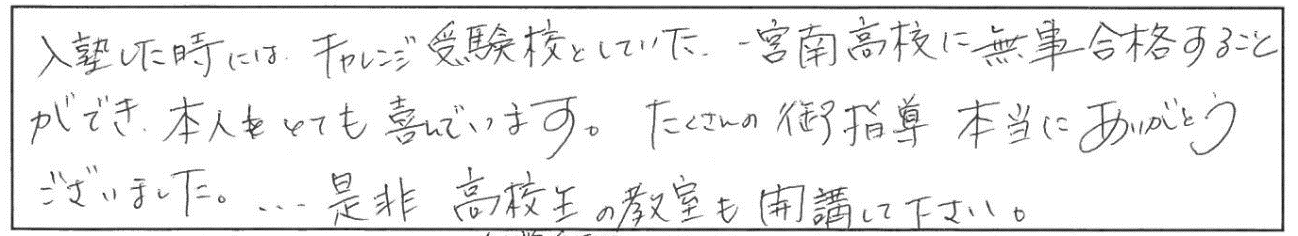 入塾した時には、チャレンジ受験校としていた、一宮南高校に無事合格すること
ができ、本人もとても喜んでいます。たくさんの御指導 本当にありがとう
ございました。... 是非 高校生の教室も開講して下さい。